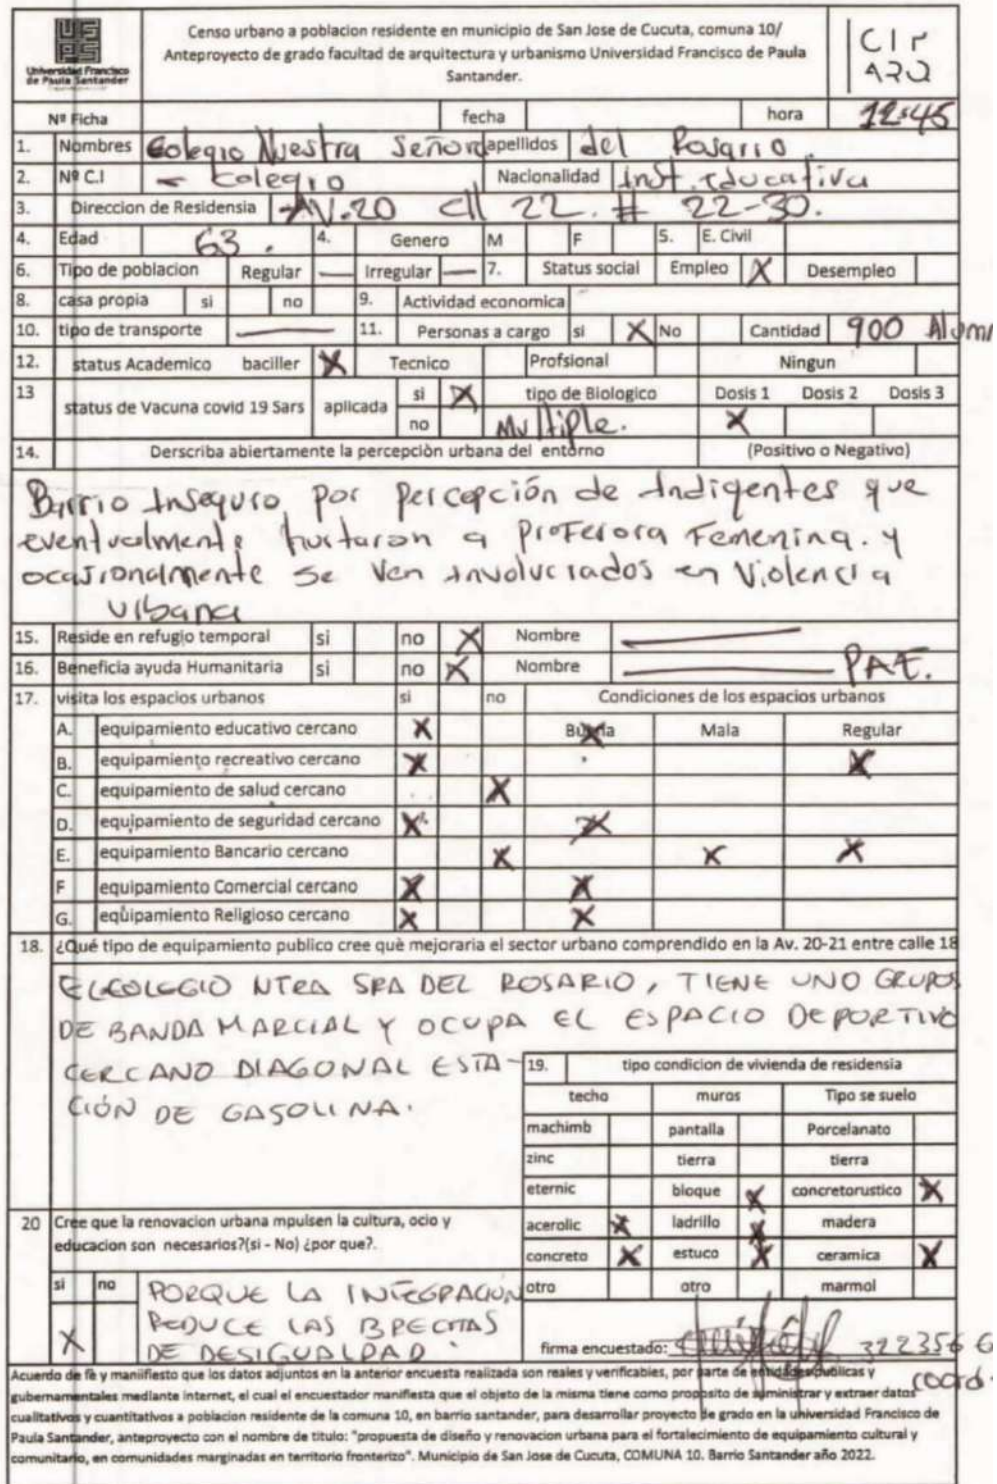 Censo urbano a poblacion residente en municipio de San Jose de Cucuta, comuna 10/
Anteproyecto de grado facultad de arquitectura y urbanismo Universidad Francisco de Paula
Santander.
Universidad Francisco
de Paula Santander
Nº Ficha fecha hora 12:45
1. Nombres Colegio Nuestra Señora apellidos del Rosario
2. Nº C.I - Colegio Nacionalidad Inst. Educativa
3. Direccion de Residensia AV. 20 cll 22. # 22-30.
4. Edad 63. 4. Genero M F 5. E. Civil
6. Tipo de poblacion Regular — Irregular — 7. Status social Empleo X Desempleo
8. casa propia si no 9. Actividad economica
10. tipo de transporte — 11. Personas a cargo si X No Cantidad 900
12. status Academico baciller X Tecnico Profsional Ningun
13 status de Vacuna covid 19 Sars aplicada si X tipo de Biologico Dosis 1 Dosis 2 Dosis 3
no Multiple. X
14. Derscriba abiertamente la percepciòn urbana del entorno (Positivo o Negativo)
Barrio Inseguro por percepción de Indigentes que
eventualmente hurtaron a Profesora Femenina. y
ocasionalmente se ven involucrados en Violencia
urbana
15. Reside en refugio temporal si no X Nombre —
16. Beneficia ayuda Humanitaria si no X Nombre — PAE.
17. visita los espacios urbanos si no Condiciones de los espacios urbanos
A. equipamiento educativo cercano X Buena X Mala Regular
B. equipamiento recreativo cercano X X
C. equipamiento de salud cercano X
D. equipamiento de seguridad cercano X X
E. equipamiento Bancario cercano X X X
F equipamiento Comercial cercano X X
G. eqùipamiento Religioso cercano X X
18. ¿Qué tipo de equipamiento publico cree què mejoraria el sector urbano comprendido en la Av. 20-21 entre calle 18
EL COLEGIO NTRA SRA DEL ROSARIO, TIENE UNO GRUPOS
DE BANDA MARCIAL Y OCUPA EL ESPACIO DEPORTIVO
CERCANO DIAGONAL ESTA-
CIÓN DE GASOLINA.
19. tipo condicion de vivienda de residensia
techo muros Tipo se suelo
machimb pantalla Porcelanato
zinc tierra tierra
eternic bloque X concretorustico X
acerolic X ladrillo X madera
concreto X estuco X ceramica X
otro otro marmol
20 Cree que la renovacion urbana mpulsen la cultura, ocio y
educacion son necesarios?(si - No) ¿por que?.
si no
X
PORQUE LA INTEGRACIÓN
REDUCE LAS BRECHAS
DE DESIGUALDAD
firma encuestado: 322356
coord.
Acuerdo de fè y maniifiesto que los datos adjuntos en la anterior encuesta realizada son reales y verificables, por parte de entidades publicas y
gubernamentales mediante internet, el cual el encuestador manifiesta que el objeto de la misma tiene como proposito de suministrar y extraer datos
cualitativos y cuantitativos a poblacion residente de la comuna 10, en barrio santander, para desarrollar proyecto de grado en la universidad Francisco de
Paula Santander, anteproyecto con el nombre de titulo: "propuesta de diseño y renovacion urbana para el fortalecimiento de equipamiento cultural y
comunitario, en comunidades marginadas en territorio fronterizo". Municipio de San Jose de Cucuta, COMUNA 10. Barrio Santander año 2022.